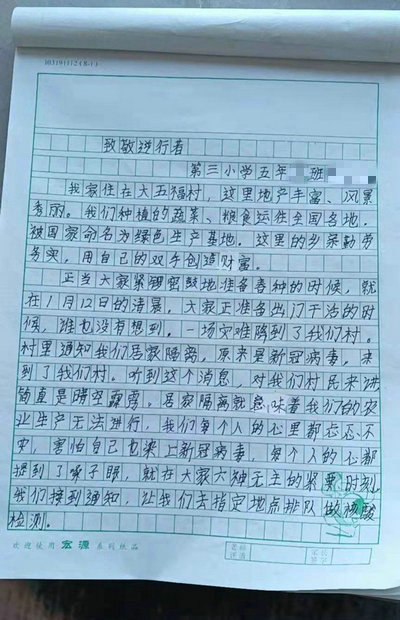 致敬逆行者
第三小学五年 班
我家住在大五福村，这里地产丰富、风景
秀丽。我们种植的蔬菜、粮食运往全国各地，
被国家命名为绿色生产基地。这里的乡亲勤劳
务实，用自己的双手创造财富。
正当大家紧锣密鼓地准备春种的时候，就
在1月12日的清晨，大家正准备出门干活的时
候，谁也没有想到，一场灾难降到了我们村。
村里通知我们居家隔离，原来是新冠病毒，来
到了我们村。听到这个消息，对我们村民来讲
简直是晴空霹雳。居家隔离就意味着我们的农
业生产无法进行，我们每个人的心里都忐忑不
安，害怕自己也染上新冠病毒，每个人的心都
提到了嗓子眼，就在大家六神无主的紧要时刻
我们接到通知，让我们去指定地点排队做核酸
检测。
欢迎使用 宏源 系列纸品